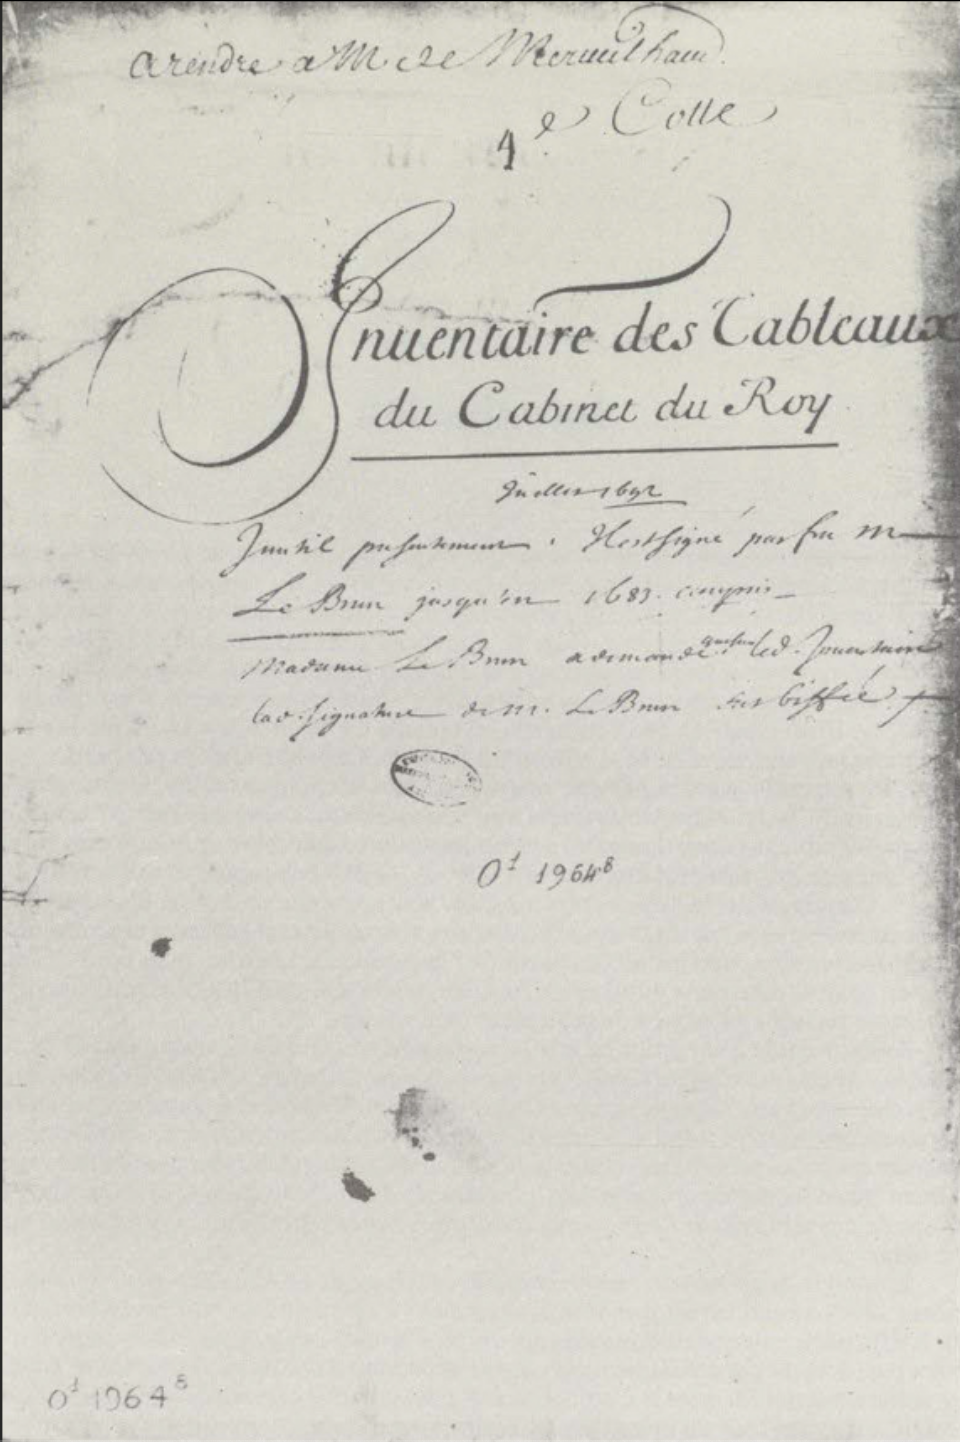 a rendre a M de
4e Cotte
Inuentaire des Tableaux
du Cabinet du Roy
Juillet 1692
Inutil presentement. Il est signé par feu M
Le Brun jusqu'en 1683. compris
Madame Le Brun a demandé que sur led. Inuentaire
lad. signature de M. Le Brun fut biffée
O1 1964 8
O1 1964 8